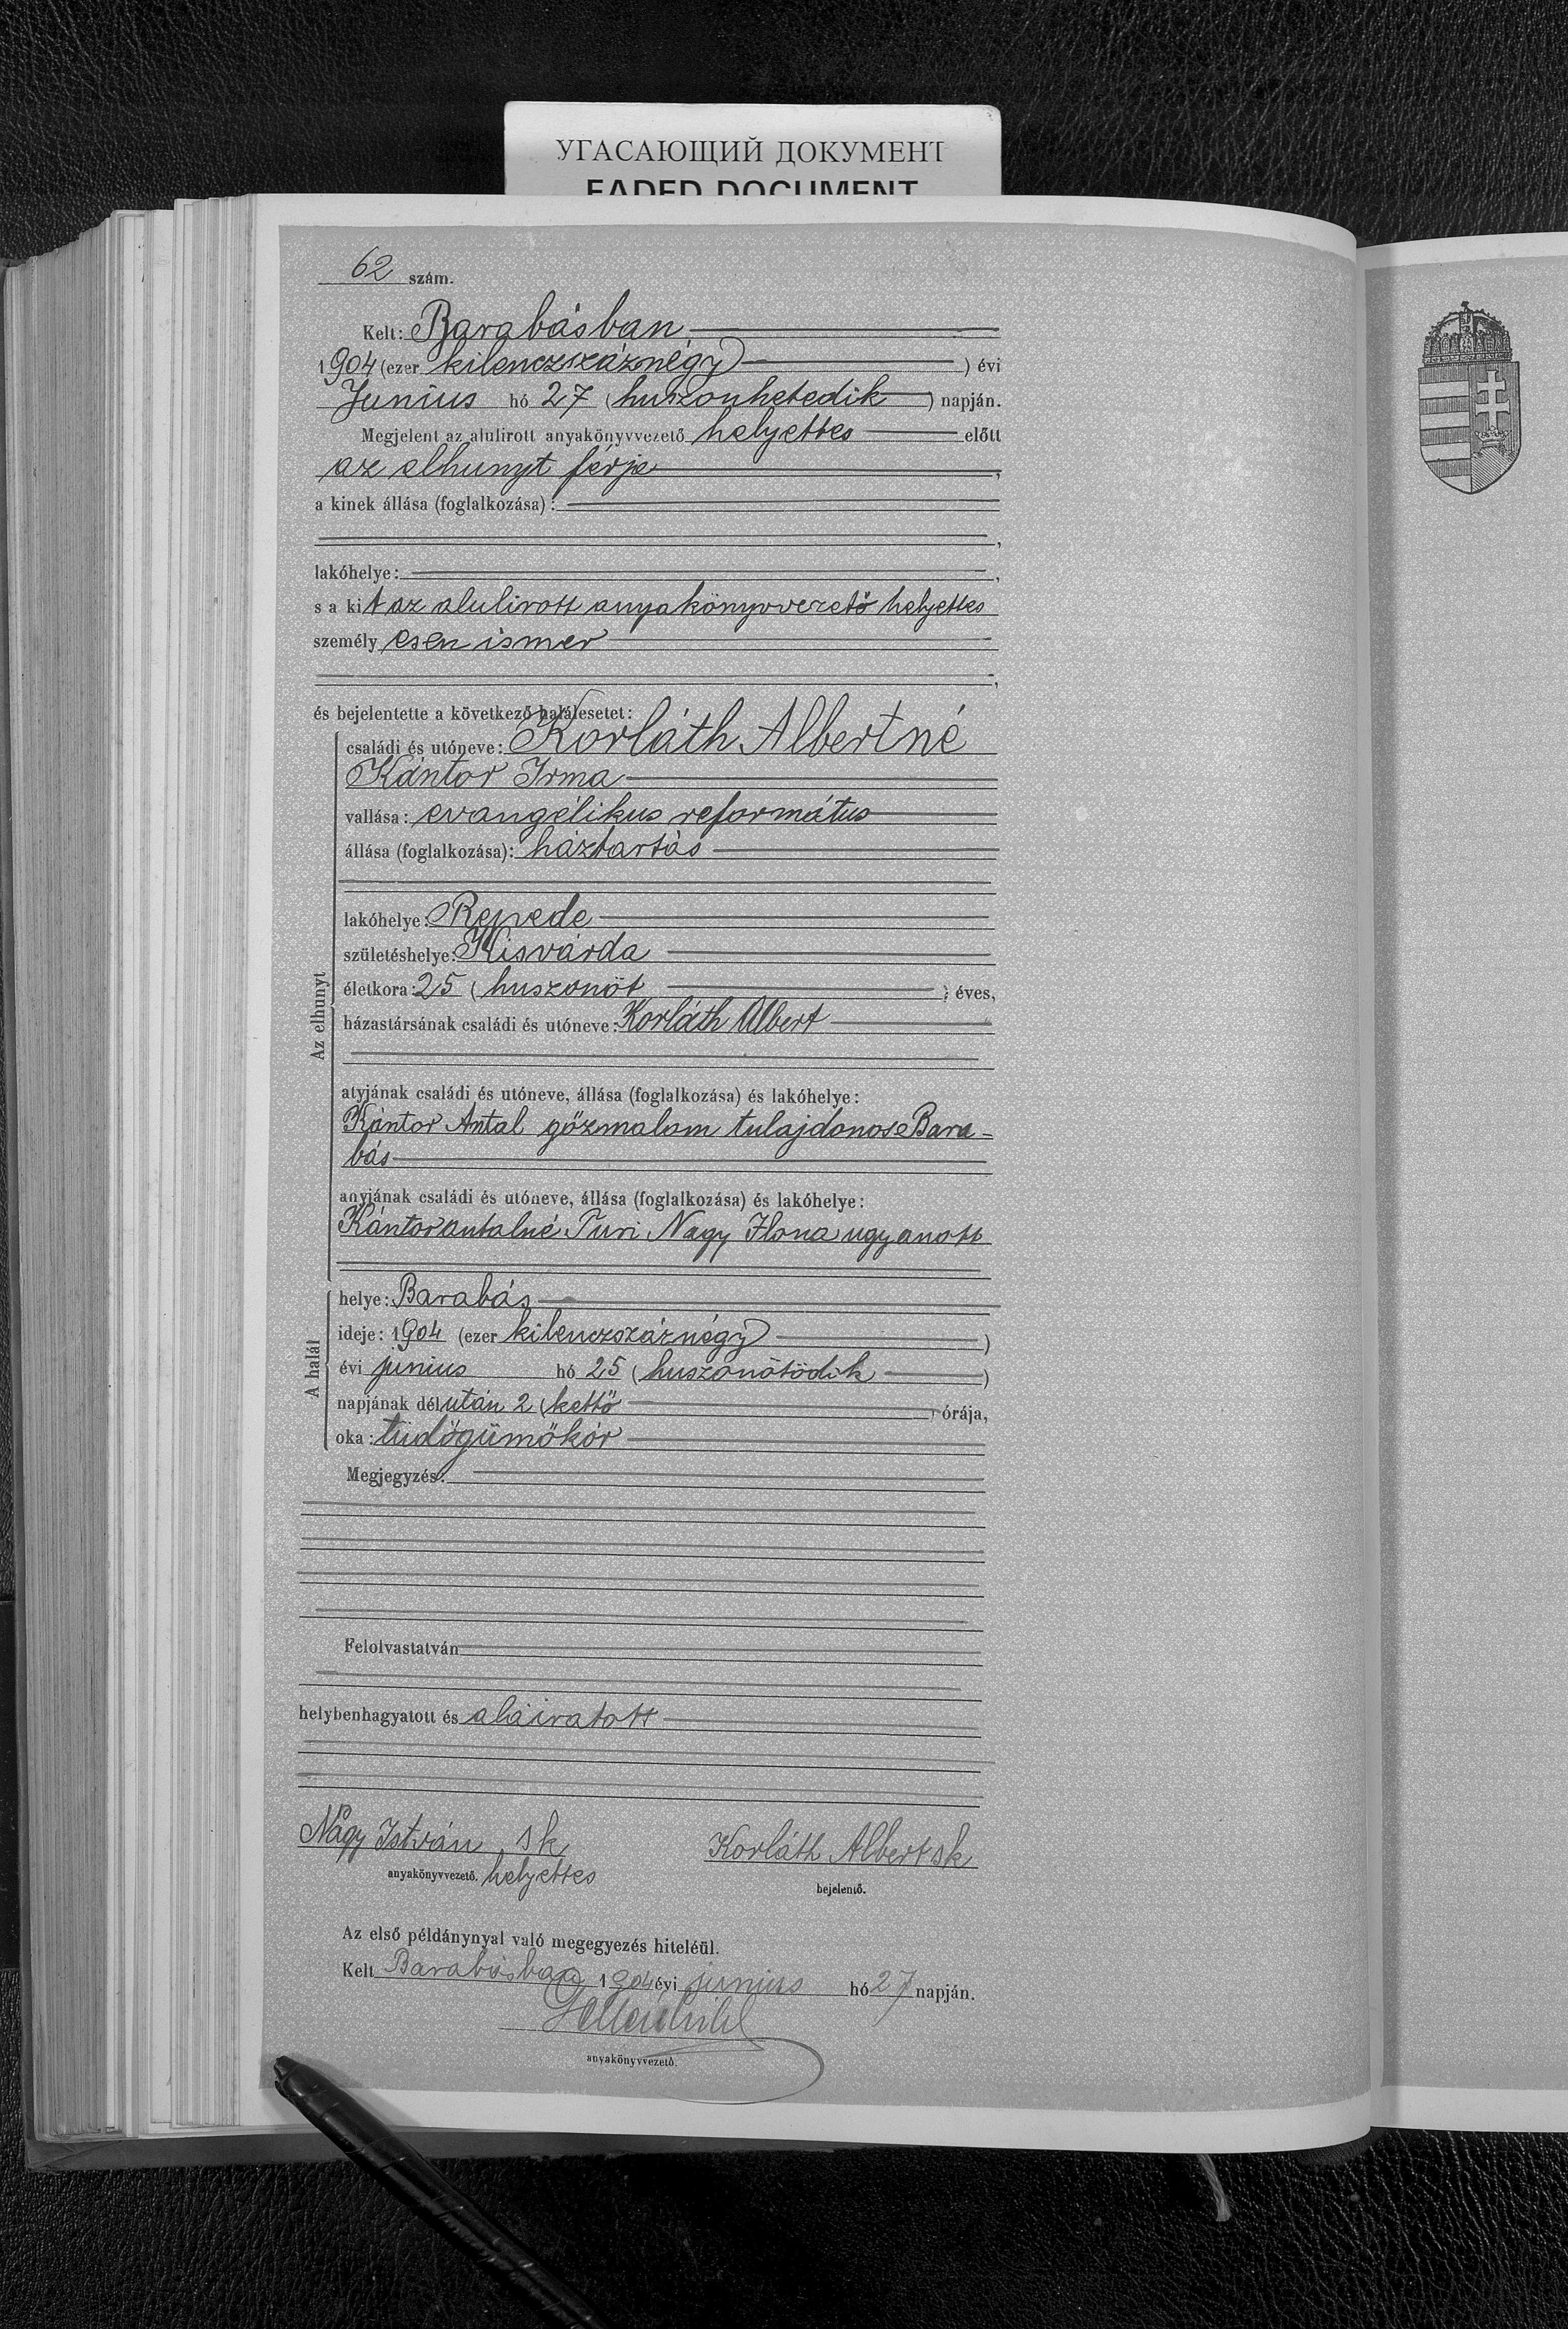 УГАСАЮЩИЙ ДОКУМЕНТ
FADED DOCUMENT
62 szám.
Kelt: Barabásban
1904 (ezer kilenczszáznégy) évi
Junius hó 27 (huszonhetedik) napján.
Megjelent az alulirott anyakönyvvezető helyettes előtt
az elhunyt férje,
a kinek állása (foglalkozása):
,
lakóhelye: ,
s a kit az alulirott anyakönyvvezető helyettes
személyesen ismer
,
és bejelentette a következő halálesetet:
családi és utóneve: Korláth Albertné
Kántor Irma
vallása: evangélikus református
állása (foglalkozása): háztartás
lakóhelye: Repede
születéshelye: Kisvárda
életkora: 25 (huszonöt) éves,
házastársának családi és utóneve: Korláth Albert
Az elhunyt
atyjának családi és utóneve, állása (foglalkozása) és lakóhelye:
Kántor Antal gőzmalom tulajdonos Bara-
bás
anyjának családi és utóneve, állása (foglalkozása) és lakóhelye:
Kántor antalné Turi Nagy Ilona ugyanott
A halál
helye: Barabás
ideje: 1904 (ezer kilenczszáznégy)
évi junius hó 25 (huszonötödik)
napjának délután 2 (kettő) órája,
oka: tüdőgümőkór
Megjegyzés:
Felolvastatván
helybenhagyatott és aláiratott
Nagy István sk Korláth Albert sk
anyakönyvvezető. helyettes bejelentő.
Az első példánynyal való megegyezés hiteléül.
Kelt Barabásban 1904 évi junius hó 27 napján.
anyakönyvvezető.